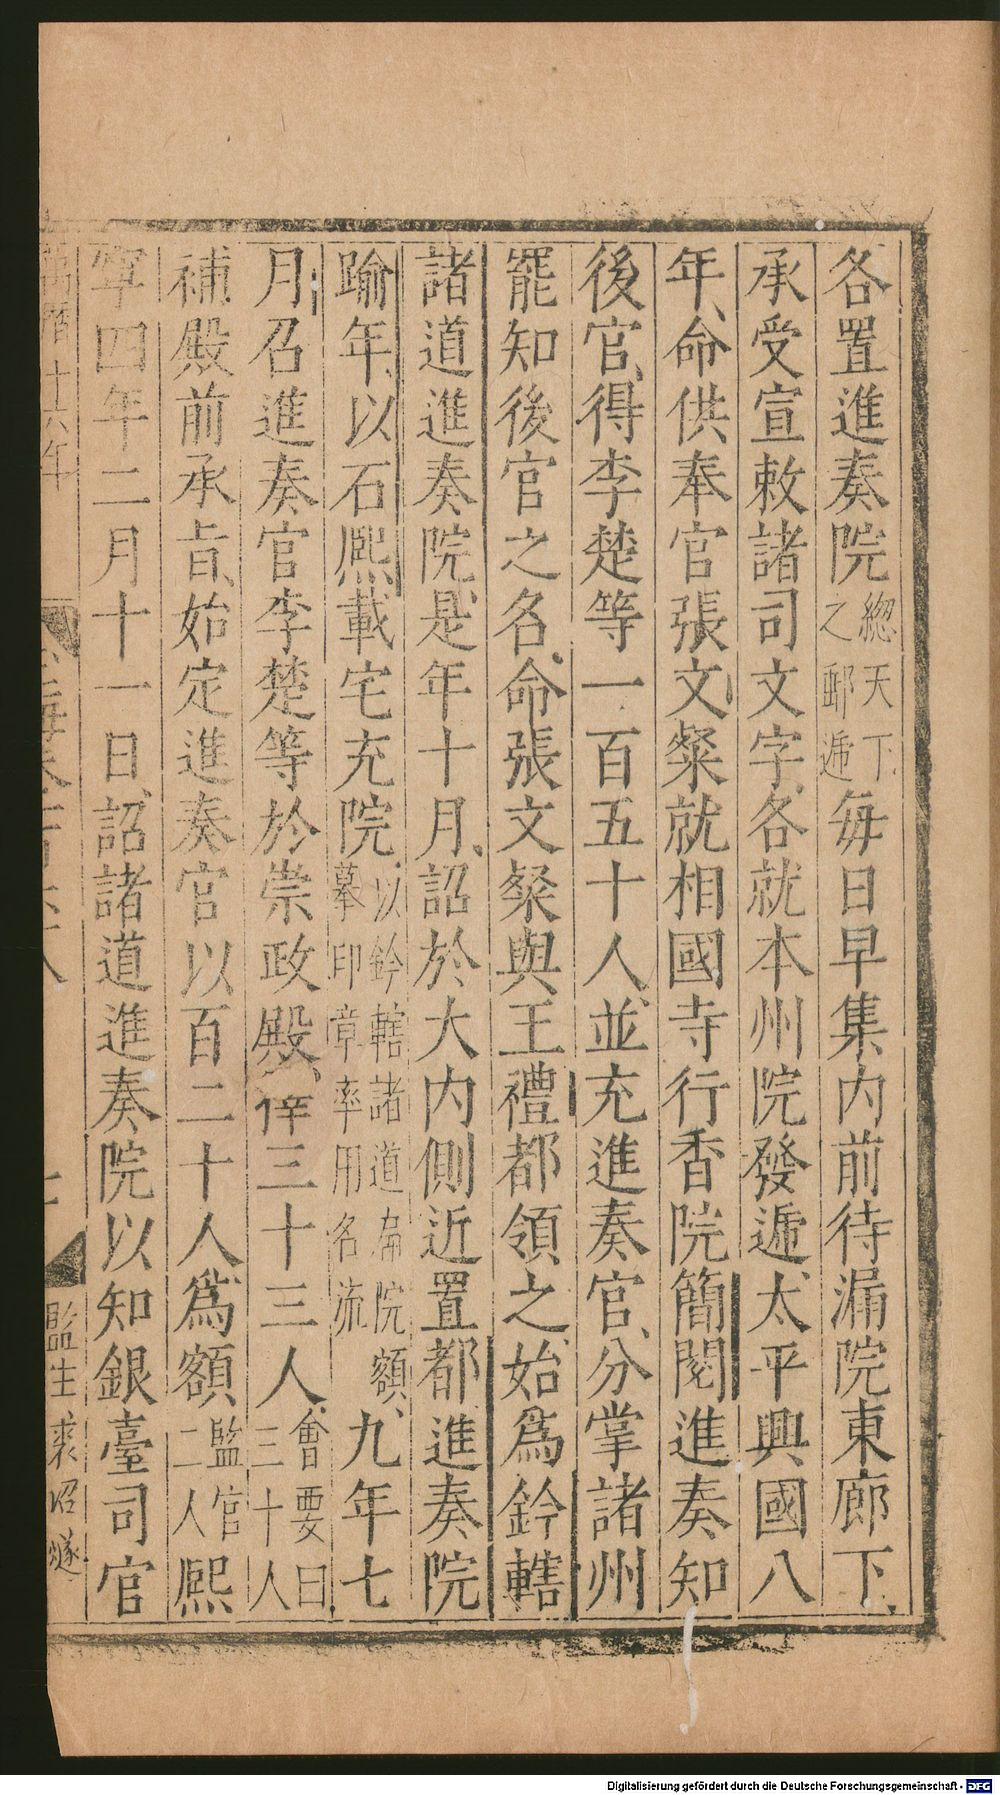 各置進奏院緫天下之郵遞每日早集内前待漏院東廊下
承受宣敕諸司文字各就本州院發遞太平興國八
年命供奉官張文粲就相國寺行香院簡閱進奏知
後官得李楚等一百五十人並充進奏官分掌諸州
罷知後官之名命張文粲與王禮都領之始爲鈐轄
諸道進奏院是年十月詔於大内側近置都進奏院
踰年以石熙載宅充院以鈐轄諸道都院額摹印章率用名流九年七
月召進奏官李楚等於崇政殿三十三人會要曰三十人
補殿前承旨始定進奏官以百二十人爲額監官二人熙
寧四年十二月十一日詔諸道進奏院以知銀臺司官
萬曆十六年
監生裘
Digitalisierung gefördert durch die Deutsche Forschungsgemeinschaft - DFG